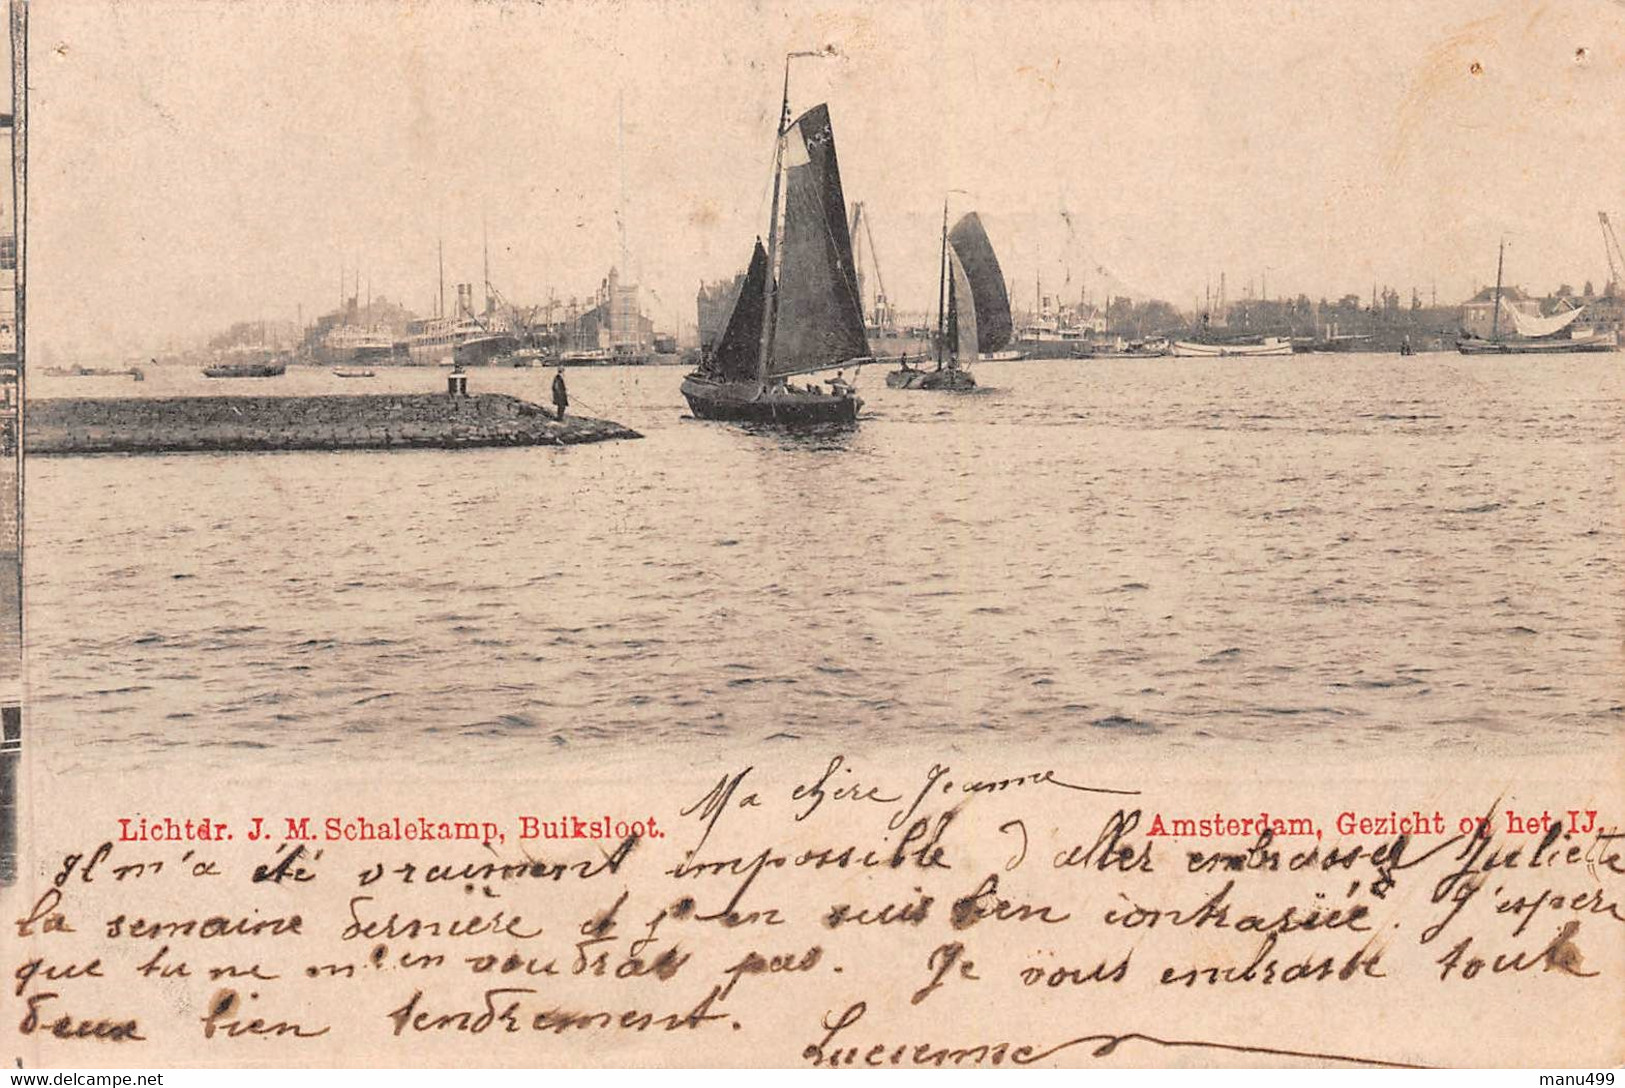 Ma chère Jeanne
Lichtdr. J. M. Schalekamp, Buiksloot.
Amsterdam, Gezicht op het IJ.
Il m'a été vraiment impossible d'aller embrasser Juliette
la semaine dernière et j'en suis bien contrariée. J'espère
que tu ne m'en voudras pas. Je vous embrasse toute
deux bien tendrement.
Lucienne
delcampe.net
manu499